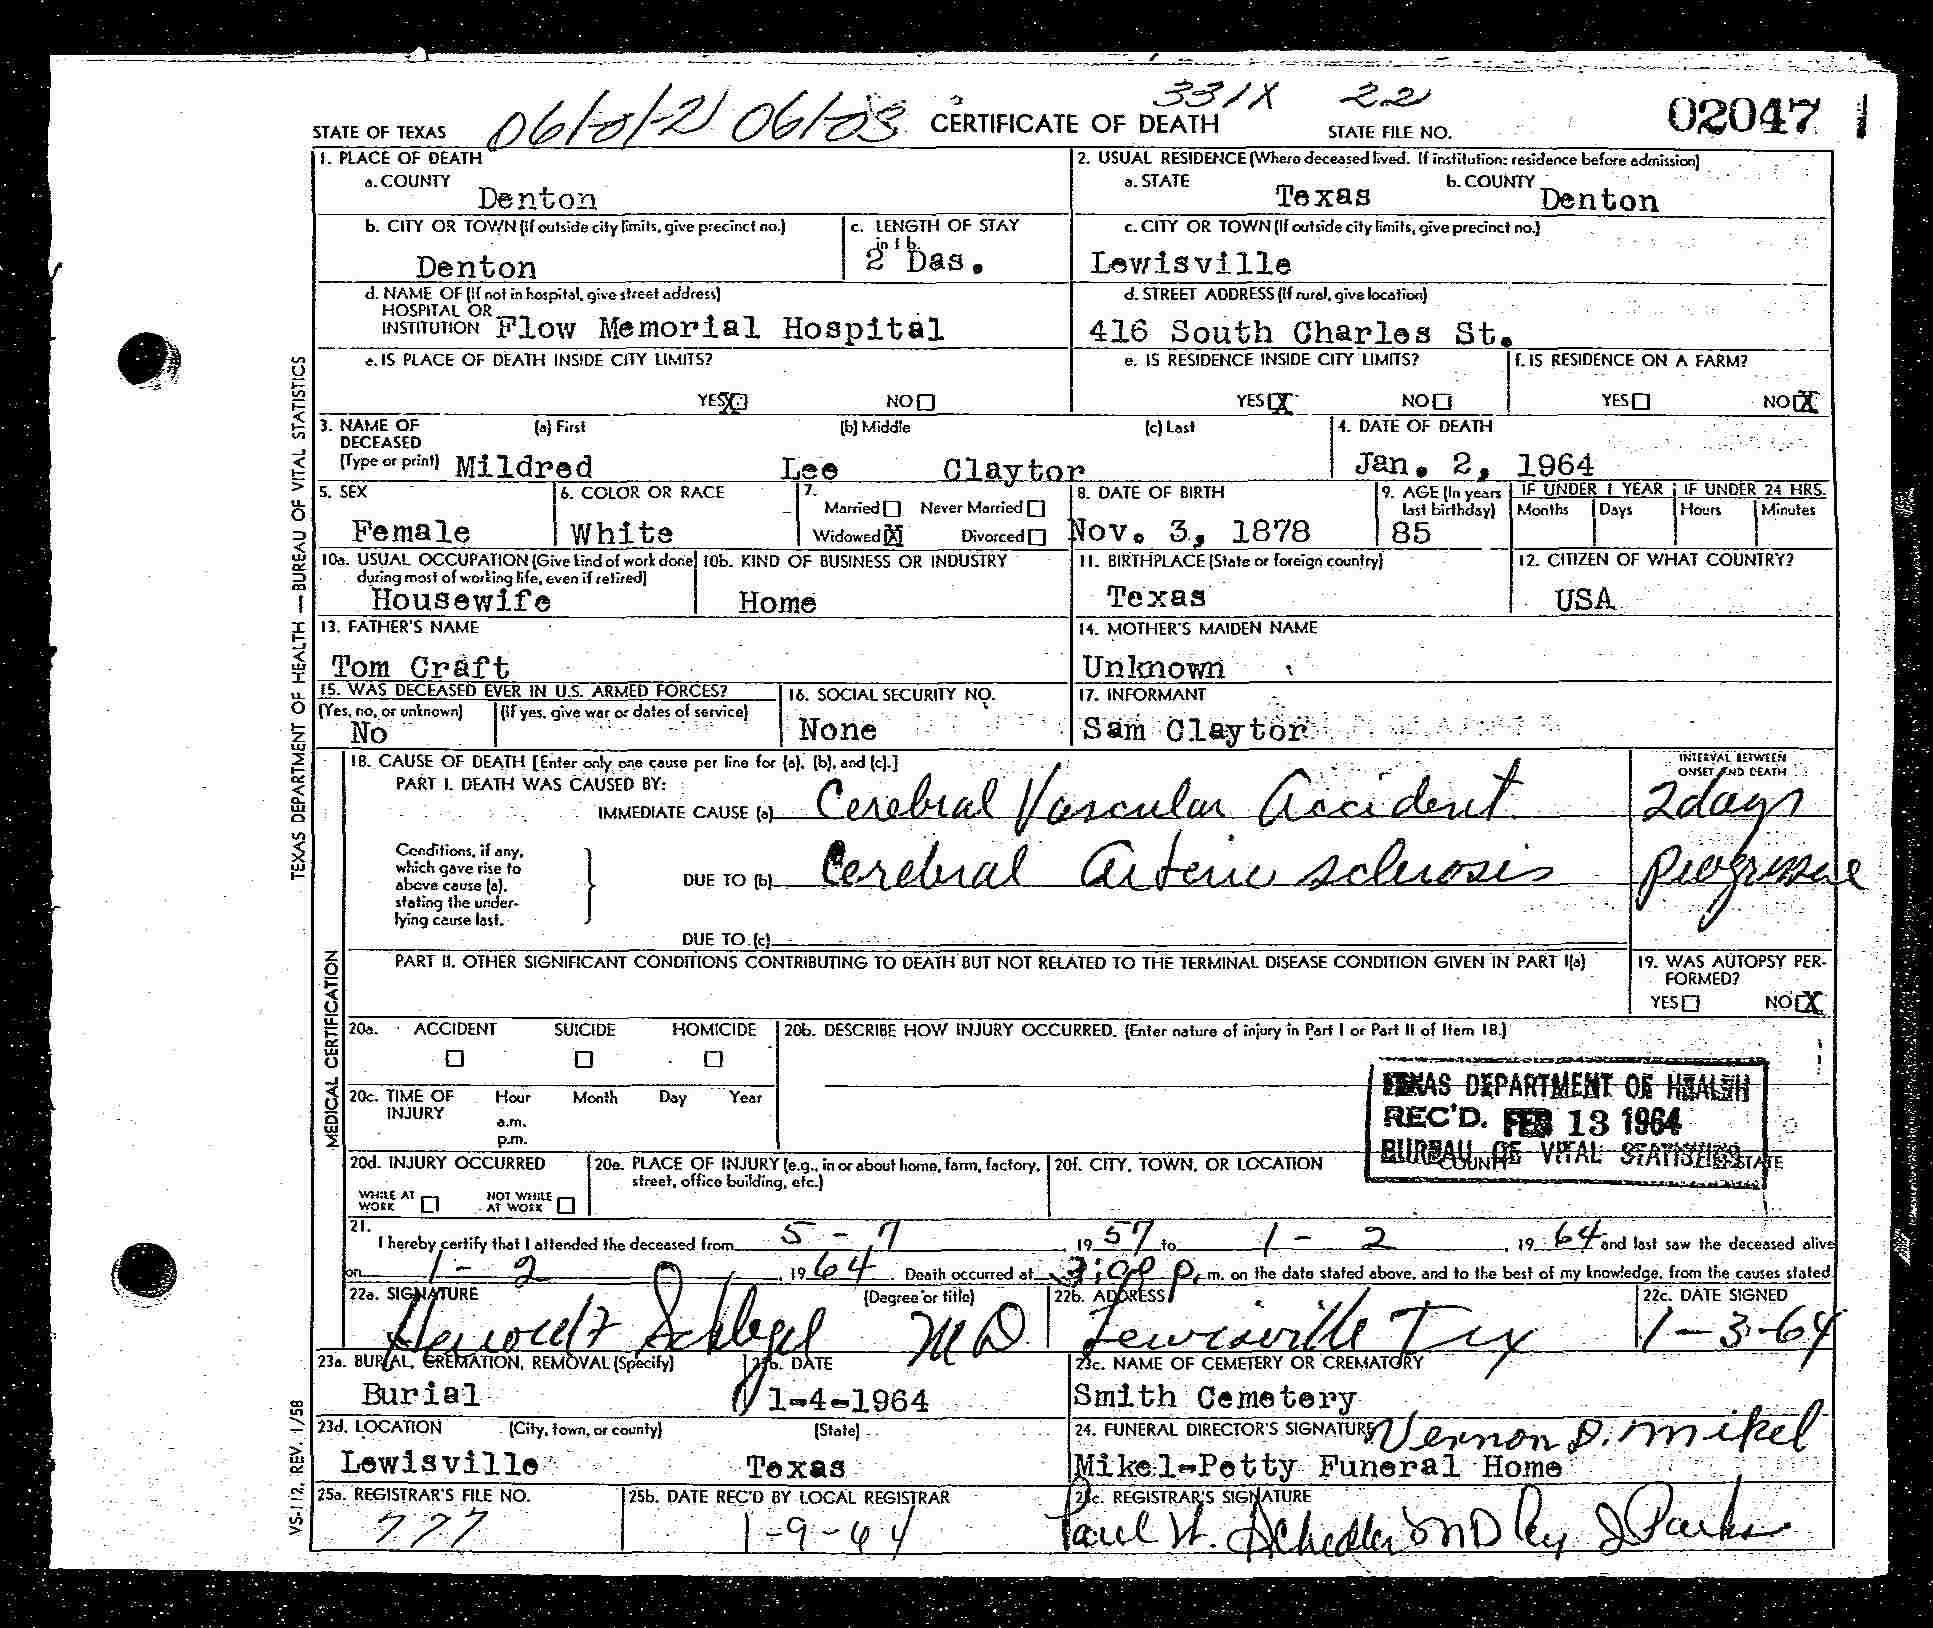 331X 22
STATE OF TEXAS 06/0/21 06/03 CERTIFICATE OF DEATH STATE FILE NO. 02047
1. PLACE OF DEATH
a. COUNTY
Denton
2. USUAL RESIDENCE (Where deceased lived. If institution: residence before admission)
a. STATE Texas b. COUNTY Denton
b. CITY OR TOWN (If outside city limits, give precinct no.)
Denton
c. LENGTH OF STAY
in 1 b.
2 Das.
c. CITY OR TOWN (If outside city limits, give precinct no.)
Lewisville
d. NAME OF (If not in hospital, give street address)
HOSPITAL OR
INSTITUTION Flow Memorial Hospital
d. STREET ADDRESS (If rural, give location)
416 South Charles St.
e. IS PLACE OF DEATH INSIDE CITY LIMITS?
YES X NO
e. IS RESIDENCE INSIDE CITY LIMITS?
YES X NO
f. IS RESIDENCE ON A FARM?
YES NO X
3. NAME OF
DECEASED
(Type or print)
(a) First (b) Middle (c) Last
Mildred Lee Claytor
4. DATE OF DEATH
Jan. 2, 1964
5. SEX
Female
6. COLOR OR RACE
White
7.
Married Never Married
Widowed X Divorced
8. DATE OF BIRTH
Nov. 3, 1878
9. AGE (In years
last birthday)
85
IF UNDER 1 YEAR IF UNDER 24 HRS.
Months Days Hours Minutes
10a. USUAL OCCUPATION (Give kind of work done
during most of working life, even if retired)
Housewife
10b. KIND OF BUSINESS OR INDUSTRY
Home
11. BIRTHPLACE (State or foreign country)
Texas
12. CITIZEN OF WHAT COUNTRY?
USA
13. FATHER'S NAME
Tom Craft
14. MOTHER'S MAIDEN NAME
Unknown
15. WAS DECEASED EVER IN U.S. ARMED FORCES?
(Yes, no, or unknown) (If yes, give war or dates of service)
No
16. SOCIAL SECURITY NO.
None
17. INFORMANT
Sam Claytor
18. CAUSE OF DEATH [Enter only one cause per line for (a), (b), and (c).]
PART I. DEATH WAS CAUSED BY:
IMMEDIATE CAUSE (a) Cerebral Vascular Accident
INTERVAL BETWEEN
ONSET AND DEATH
2 days
Conditions, if any,
which gave rise to
above cause (a),
stating the under-
lying cause last.
DUE TO (b) Cerebral Arterio sclerosis progressive
DUE TO (c)
PART II. OTHER SIGNIFICANT CONDITIONS CONTRIBUTING TO DEATH BUT NOT RELATED TO THE TERMINAL DISEASE CONDITION GIVEN IN PART I(a)
19. WAS AUTOPSY PER-
FORMED?
YES NO X
20a. ACCIDENT SUICIDE HOMICIDE
20b. DESCRIBE HOW INJURY OCCURRED. (Enter nature of injury in Part I or Part II of Item 18.)
20c. TIME OF
INJURY
Hour Month Day Year
a.m.
p.m.
TEXAS DEPARTMENT OF HEALTH
REC'D. FEB 13 1964
BUREAU OF VITAL STATISTICS
20d. INJURY OCCURRED
WHILE AT
WORK
NOT WHILE
AT WORK
20e. PLACE OF INJURY (e.g., in or about home, farm, factory,
street, office building, etc.)
20f. CITY, TOWN, OR LOCATION COUNTY STATE
21.
I hereby certify that I attended the deceased from 5-7, 1957 to 1-2, 1964 and last saw the deceased alive
on 1-2, 1964. Death occurred at m. on the date stated above, and to the best of my knowledge, from the causes stated
22a. SIGNATURE (Degree or title)
M D
22b. ADDRESS
Lewisville Tex
22c. DATE SIGNED
1-3-64
23a. BURIAL, CREMATION, REMOVAL (Specify)
Burial
23b. DATE
1-4-1964
23c. NAME OF CEMETERY OR CREMATORY
Smith Cemetery
23d. LOCATION (City, town, or county) (State)
Lewisville Texas
24. FUNERAL DIRECTOR'S SIGNATURE Vernon D. Mikel
Mikel-Petty Funeral Home
25a. REGISTRAR'S FILE NO.
777
25b. DATE REC'D BY LOCAL REGISTRAR
1-9-64
25c. REGISTRAR'S SIGNATURE
Paul W. MD
TEXAS DEPARTMENT OF HEALTH — BUREAU OF VITAL STATISTICS
MEDICAL CERTIFICATION
VS-112, REV. 1/58